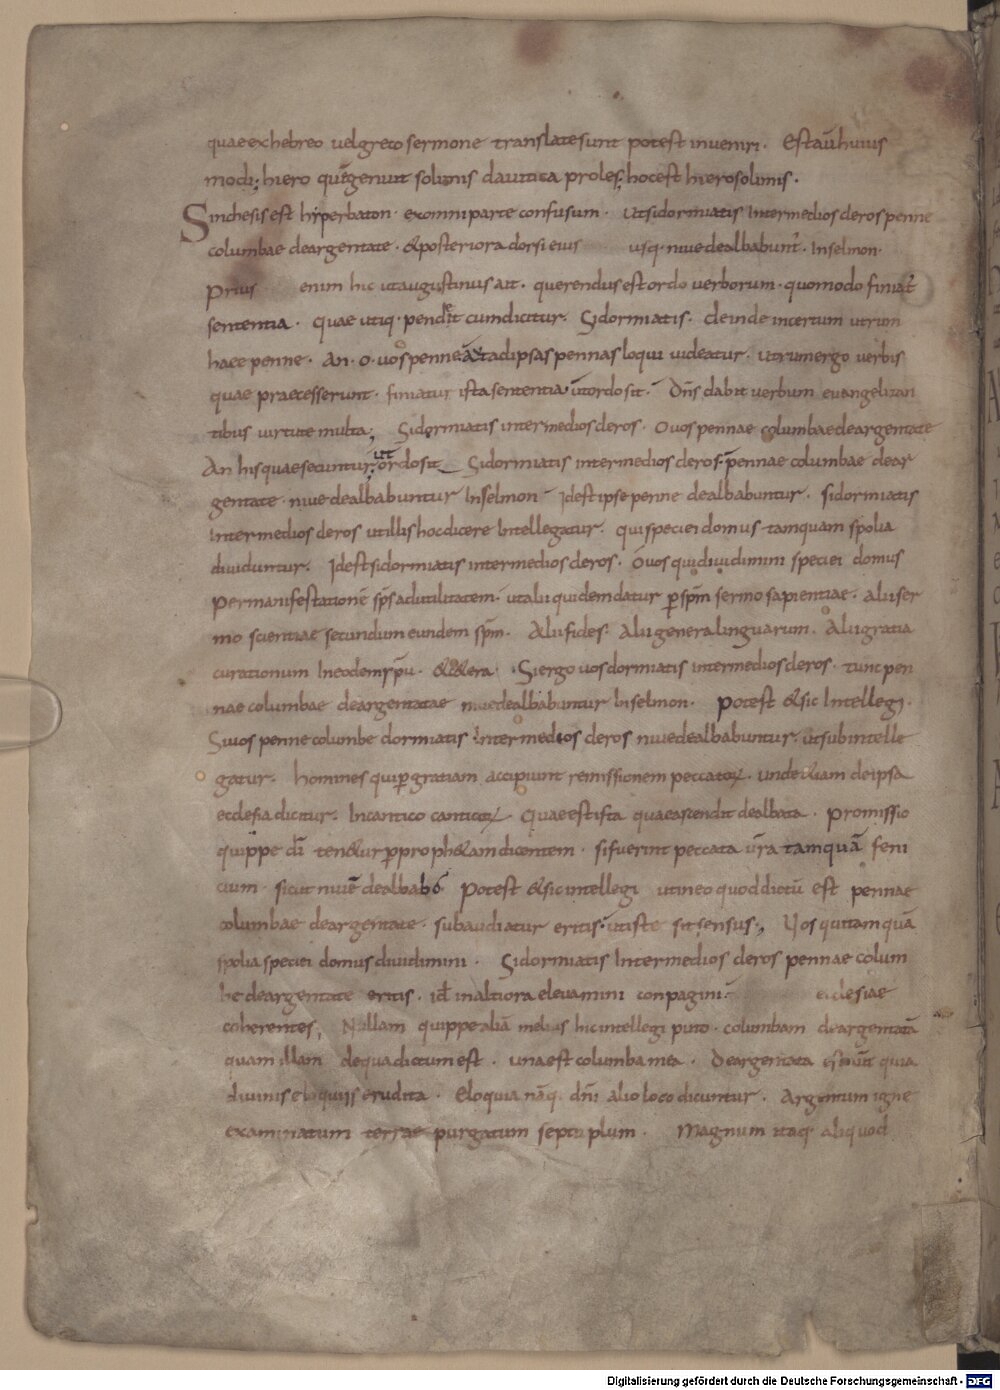 quae ex hebreo vel greco sermone translate sunt potest inveniri. Est aut̄ huius
modi; hiero quē genuit solimis davitica proles; hoc est hierosolimis.
Sinchesis est hyperbaton. ex omni parte confusum. ut si dormiatis Inter medios cleros penne
columbae deargentate. & posteriora dorsi eius usq. nive dealbabunt̄. In selmon.
Prius enim hic ut augustinus ait. querendus est ordo verborum. quomodo finiat̄
sententia. Quae utiq. pendet cum dicitur. Si dormiatis. deinde incertum utrum
haec penne. An. o. vos penne ad ipsas pennas loqui videatur. utrum ergo verbis
quae praecesserunt. finiatur ista sententia. ut ordo sit. Dn̄s dabit verbum evangelizan
tibus virtute multa; Si dormiatis inter medios cleros. O vos pennae columbae deargentate
An his quae secuntur; ut ordo sit Si dormiatis inter medios cleros. pennae columbae dear
gentate. nive dealbabuntur In selmon Id est ipse penne dealbabuntur. si dormiatis
Inter medios cleros ut illis hoc dicere Intellegatur. qui speciei domus tamquam spolia
dividuntur. Id est si dormiatis inter medios cleros. O vos qui dividimini speciei domus
per manifestationē sp̄s ad utilitatem. ut alii quidem datur p̄ sp̄m sermo sapientiae. alii ser
mo scientiae secundum eundem sp̄m. Alii fides. Alii genera linguarum. Alii gratia
curationum In eodem sp̄u. & c&era. Si ergo vos dormiatis inter medios cleros. tunc pen
nae columbae deargentatae nive dealbabuntur In selmon. Potest & sic Intellegi.
Si vos penne columbe dormiatis inter medios cleros nive dealbabuntur. ut subintelle
gatur. homines qui p̄ gratiam accipiunt remissionem peccatoꝝ. unde &iam de ipsa
ecclesia dicitur. In cantico canticoꝝ. Quae est ista quae ascendit dealbata. Promissio
quippe dī ten&ur p̄ proph&am dicentem. si fuerint peccata v̄ra tamquā feni
cium. sicut nivē dealbabo Potest & sic intellegi ut in eo quod dictū est pennae
columbae deargentate. subaudiatur eritis. ut iste sit sensus; Vos qui tamquā
spolia speciei domus dividimini. Si dormiatis Inter medios cleros pennae colum
be deargentate eritis. id̄ in altiora elevamini conpagini ecclesiae
coherentes; Nullam quippe aliā melius hic intellegi puto. columbam deargentatā
quam illam de qua dictum est. una est columba mea. Deargentata quia
divinis eloquiis erudita. Eloquia nāq. dn̄i alio loco dicuntur. Argentum igne
examinatum terrae purgatum septuplum. Magnum itaq. aliquod
Digitalisierung gefördert durch die Deutsche Forschungsgemeinschaft - DFG